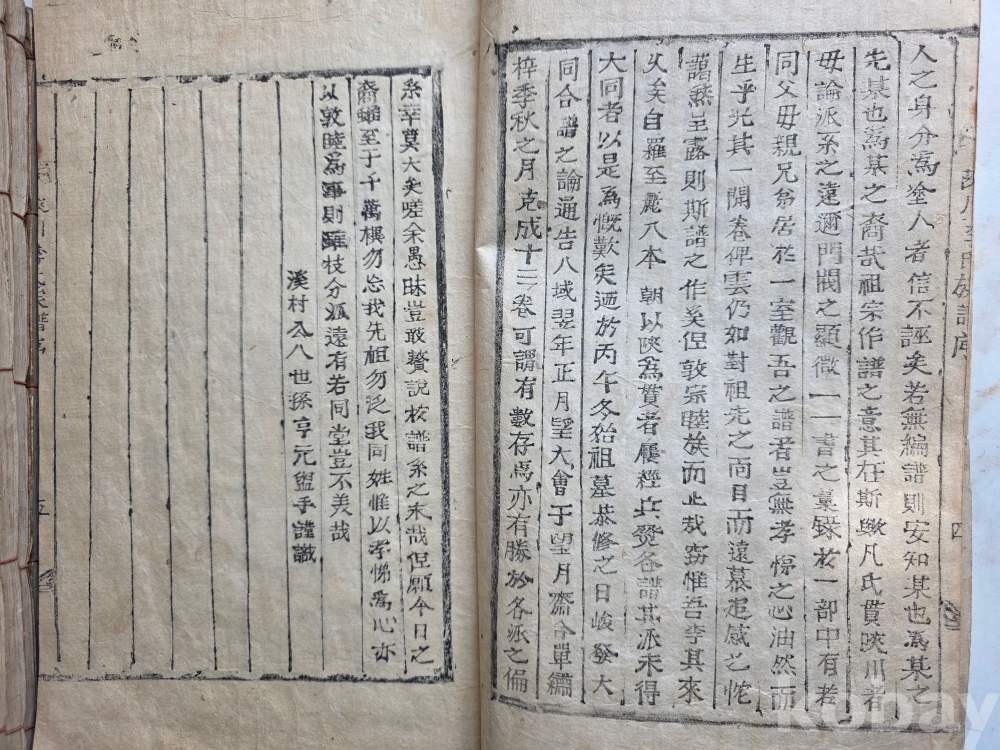 人之身分爲塗人者信不誣矣若無編譜則安知某也爲某之
先某也爲某之裔哉祖宗作譜之意其在斯歟凡氏貫陜川者
毋論派系之遠邇門閥之顯微一一書之彙錄於一部中有若
同父毋親兄弟居於一室觀吾之譜者豈無孝悌之心油然而
生乎尤其一開卷俾雲仍如對祖先之面目而遠慕追感之忱
藹然呈露則斯譜之作奚但敦宗睦族而止哉竊惟吾李其來
久矣自羅至麗入本 朝以陜爲貫者屢經兵燹各譜其派未得
大同者以是爲慨歎矣廼於丙午冬始祖墓恭修之日峻發大
同合譜之論通告八域翌年正月望大會于望月齋合單繡
梓季秋之月克成十二卷可謂有數存焉亦有勝於各派之偏
系幸莫大矣嗟余愚昧豈敢贅說於譜系之末哉但願今日之
裔雖至于千萬禩勿忘我先祖勿泛我同姓惟以孝悌爲心亦
以敦睦爲事則雖枝分派遠有若同堂豈不美哉
溪村公八世孫亨元盥手謹識
五
四
kobay